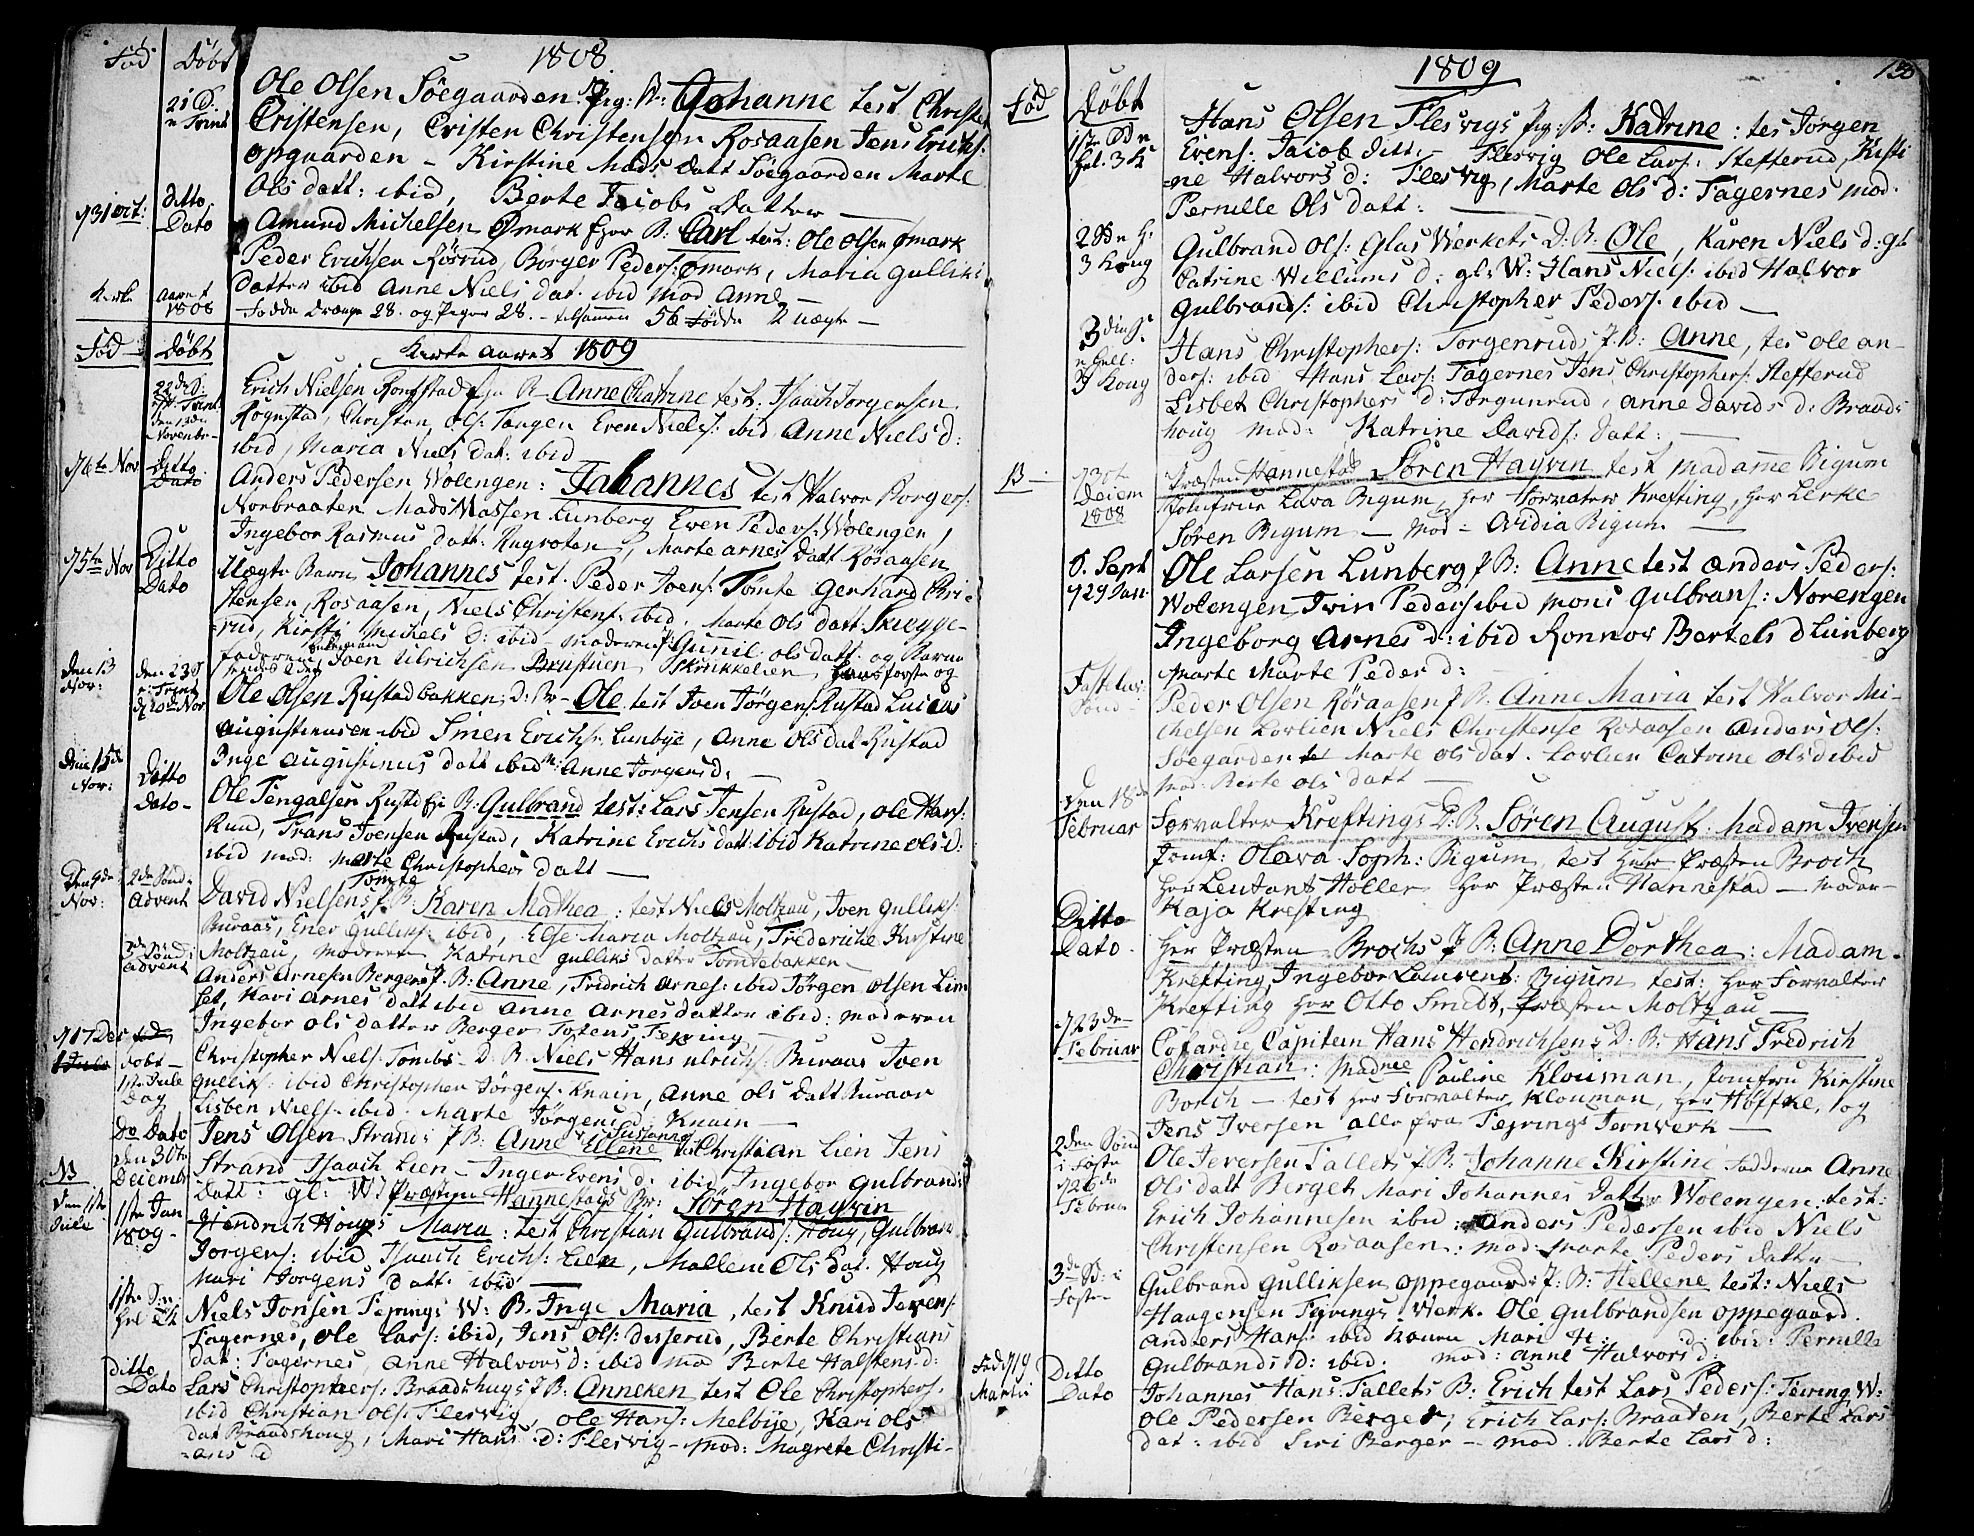 1808
Fød Døbt
21 S. n Trinit
Ole Olsen Søegaarden Pig: B: Johanne test Christe
Cristensen, Cristen Christensen Rosaasen Jens Erichs:
opgaarden - Kirstine Mads Datt Søegaarden Marte
Ols datt: ibid, Berte Jacobs Datter
31 oct: ditto Dato
Amund Michelsen Ømark B: Carl test: Ole Olsen Ømark
Peder Erichsen Rørrud, Børger Peders: Ømark, Maria Gulliks
Datter ibid Anne Niels dat. ibid mod Anne —
Kirke Aaret 1808
Fødde Drænge 28. og Piger 28. - tilsammen 56 Fødde 2 uægte —
Fød Døbt
Kirke Aaret 1809
22de S. Trinit: Novembr
Erich Nielsen B - Anne Catrine test. Isaach Jørgensen
Rognstad, Christen Ols: Tangen Even Niels: ibid Anne Niels d:
ibid, Maria Niels dat: ibid
6te Nov Ditto Dato
Anders Pedersen Wolengen: Johannes test Halvor Borgers:
Norbraaten Mads Massen Lunberg Even Peders: Wolengen,
Ingebor Rasmus datt: , Marte Arnes Datt Røsaasen
5te Nov Ditto Dato
Uægte Barn Johannes test. Peder Ivers: Tømte Gerhard Chri-
stensen, Rosaasen, Niels Christens: ibid. Marte Ols datt: Skiegge-
rud, Kirsti Michels D: ibid Moderen Gunnil Ols datt: og Barne
faderen Iven Ulrichsen
Den 13 Nov: den 23 S n: Trinit d 20de Nov.
Ole Olsen Rustadbakken D: B - Ole test Iven Jørgens: Rustad Lucas
Augustinusen ibid Simen Erichs: Lunbye, Anne Ols dat Rustad
Inge Augustinus datt ibid m: Anne Jørgens d:
Den 15de Nov: Ditto Dato -
Ole Tengalsen Rustd B: Gulbrand test: Lars Jensen Rustad, Ole Hans:
Rud, Frans Ivensen Rustad, Katrine Erichs datt: ibid Katrine Ols d:
ibid mod: Marte Christophers datt —
Den 9de Nov: 2den Sønd: Advent
David Nielsens Tømte P. B: Karen Mathea: test Niels Moltzau, Iven Gulliks:
Buraas, Ener Gulliks: ibid, Else Maria Moltzau, Frederiche Kirstine
Moltzau, Moderen Katrine Gulliks datter Tømtebakken —
3de Sønd: Advent
Anders Arnesen Bergers P. B: Anne, Fridrich Arnes: ibid Jørgen Olsen Lim-
set, Kari Arnes datt ibid Anne Arnes datter ibid: moderen
Ingebor Ols datter Berger Totens, Fejring —
17 Des Døbt 1ste Jule Dag
Christopher Niels: Tombs D. B: Niels Hans Ulrichs: Buraas Iven
Gulliks: ibid Christopher Jørgens: Knain, Anne Ols Datt Buraas
Lisben Niels: ibid. Marte Jørgens d: Knain —
Do Dato
Jens Olsen Strands P B: Anne Susanne Ellene test Christian Lien Jens
Strand Isaach Lien - Inger Evens d: ibid, Ingebor Gulbrands
Datt: gl: W:
NB den 30te Decembr
Præsten Hannestads Br: Søren Hagvin
1ste Jan 1809 -
Hendrich Hougs Maria: test Christian Gulbrands: Houg, Gulbran
Jørgens: ibid Isaach Erichs: Lien, Mallene Ols dat. Houg
Mari Jørgens Datt: ibid —
1ste S: n. Hel. 3 K
Niels Jonsen Fejrings W: B. Inge Maria, test Knud Ivers:
Fagernes, Ole Lars: ibid, Jens Ols: Disserud, Berte Christians
dat: Fagernes, Anne Halvors d: ibid mod Berte Halstens d:
ditto Dato
Lars Christophers: Braadshugs P B: Anneken test Ole Christophers:
ibid Christian Ols: Flesvig, Ole Hans: Melbije, Kari Ols
dat Braadshoug, Mari Hans d: Flesvig - mod: Magrete Christi-
ans d
1809
150
Fød Døbt
1ste S n Hel. 3 K
Hans Olsen Flesvigs Pig: B: Katrine: tes Jørgen
Evens: Jacob ditt: - Flesvig Ole Lars: Stefferud, Kirsti
=ne Halvors d: Flesvig, Marte Ols d: Fagernes mod.
Pernille Ols datt: —
2 S n H: 3 Kong
Gulbrand Ols: Glas Werkets D: B: Ole, Karen Niels d: gl
Catrine Willums d: gl: W: Hans Niels: ibid Halvor
Gulbrands: ibid Christopher Peders: ibid —
3 die S: n Hell: 3 Kong
Hans Christophers: Torgenruds P. B: Anne, tes Ole An-
ders: ibid Hans Lars: Fagernes Jens Christophers: Stefferud
Lisbet Christophers d: Torgunrud, Anne Davids d: Braads
houg mod: Katrine Davids: datt: —
B - 30te Decem 1808
Præsten Hannestad Søren Hagvin test Madamme Bigum
Jomfrue Lava Bigum, Her Forvalter Krefting, Her Lerke
Søren Bigum — Mod = Ovidia Bigum. —
D. Sept 29 Jan.
Ole Larsen Lunberg P B: Anne test Anders Peders:
Wolengen Iver Peders ibid Mons Gulbrans: Norengen
Ingeborg Arnes d: ibid Ronnor Bertels d Lunberg
Marte Marte Peder d:
Fastelav: Sønd -
Peder Olsen Røsaasen P B: Anne Maria test Halvor Mi-
chelsen Lorlien Niels Christense Rosaasen Anders Ols:
Søegarden Marte Ols dat. Lorlien Catrine Ols d ibid
Mod: Berte Ols datt —
den 18de Februar
Forvalter Kreftings D: B. Søren August. Madam Iversen
Jomf: Olava Soph: Bigum, test Her Præsten Broch
Her Leutant Holler Her Præsten Hannestad — Moder-
Kaja Krefting
Ditto Dato.
Her Præsten Brochs P B: Anne Dorthea: Madam.
Krefting, Ingebor Laurent: Bigum test: Her Forvalter
Krefting Her Otto Smedt, Præsten Moltzau —
23de Februar
Cofardie Capitein Hans Hendrichsens D. B: Hans Fredrich
Christian: Madme Pauline Klouman, Jomfru Kirstine
Borch — test Her Forvalter Klouman, Her Høffke, og
Jens Iversen alle fra Fejrings Jernverk —
2den Sønd i Faste 26de Februar
Ole Iversen Fallets P B: Johanne Kirstine Fadderne Anne
Ols datt Berget Mari Johannes Datter Wolengen. test:
Erich Johannesen ibid: Anders Pedersen ibid Niels
Christensen Rosaasen: mod: Marte Peders datter —
3de S: i Faste
Gulbrand Gulliksen Oppegaards P: B: Hellene test: Niels
Haagensen Fejrings Werk. Ole Gulbrandsen Oppegaard.
Anders Hans: ibid Mari H: d: ibid: Pernille
Gulbrands d: ibid. mod: Anne Halvors d:
Fød 19 Marti Ditto Dato
Johannes Hans: Fallets B: Erich test Lars Peders: Feiring W:
Ole Pedersen Berger, Erich Lars: Braaten, Berte Lars
dat: ibid Siri Berger - mod: Berte Lars d: